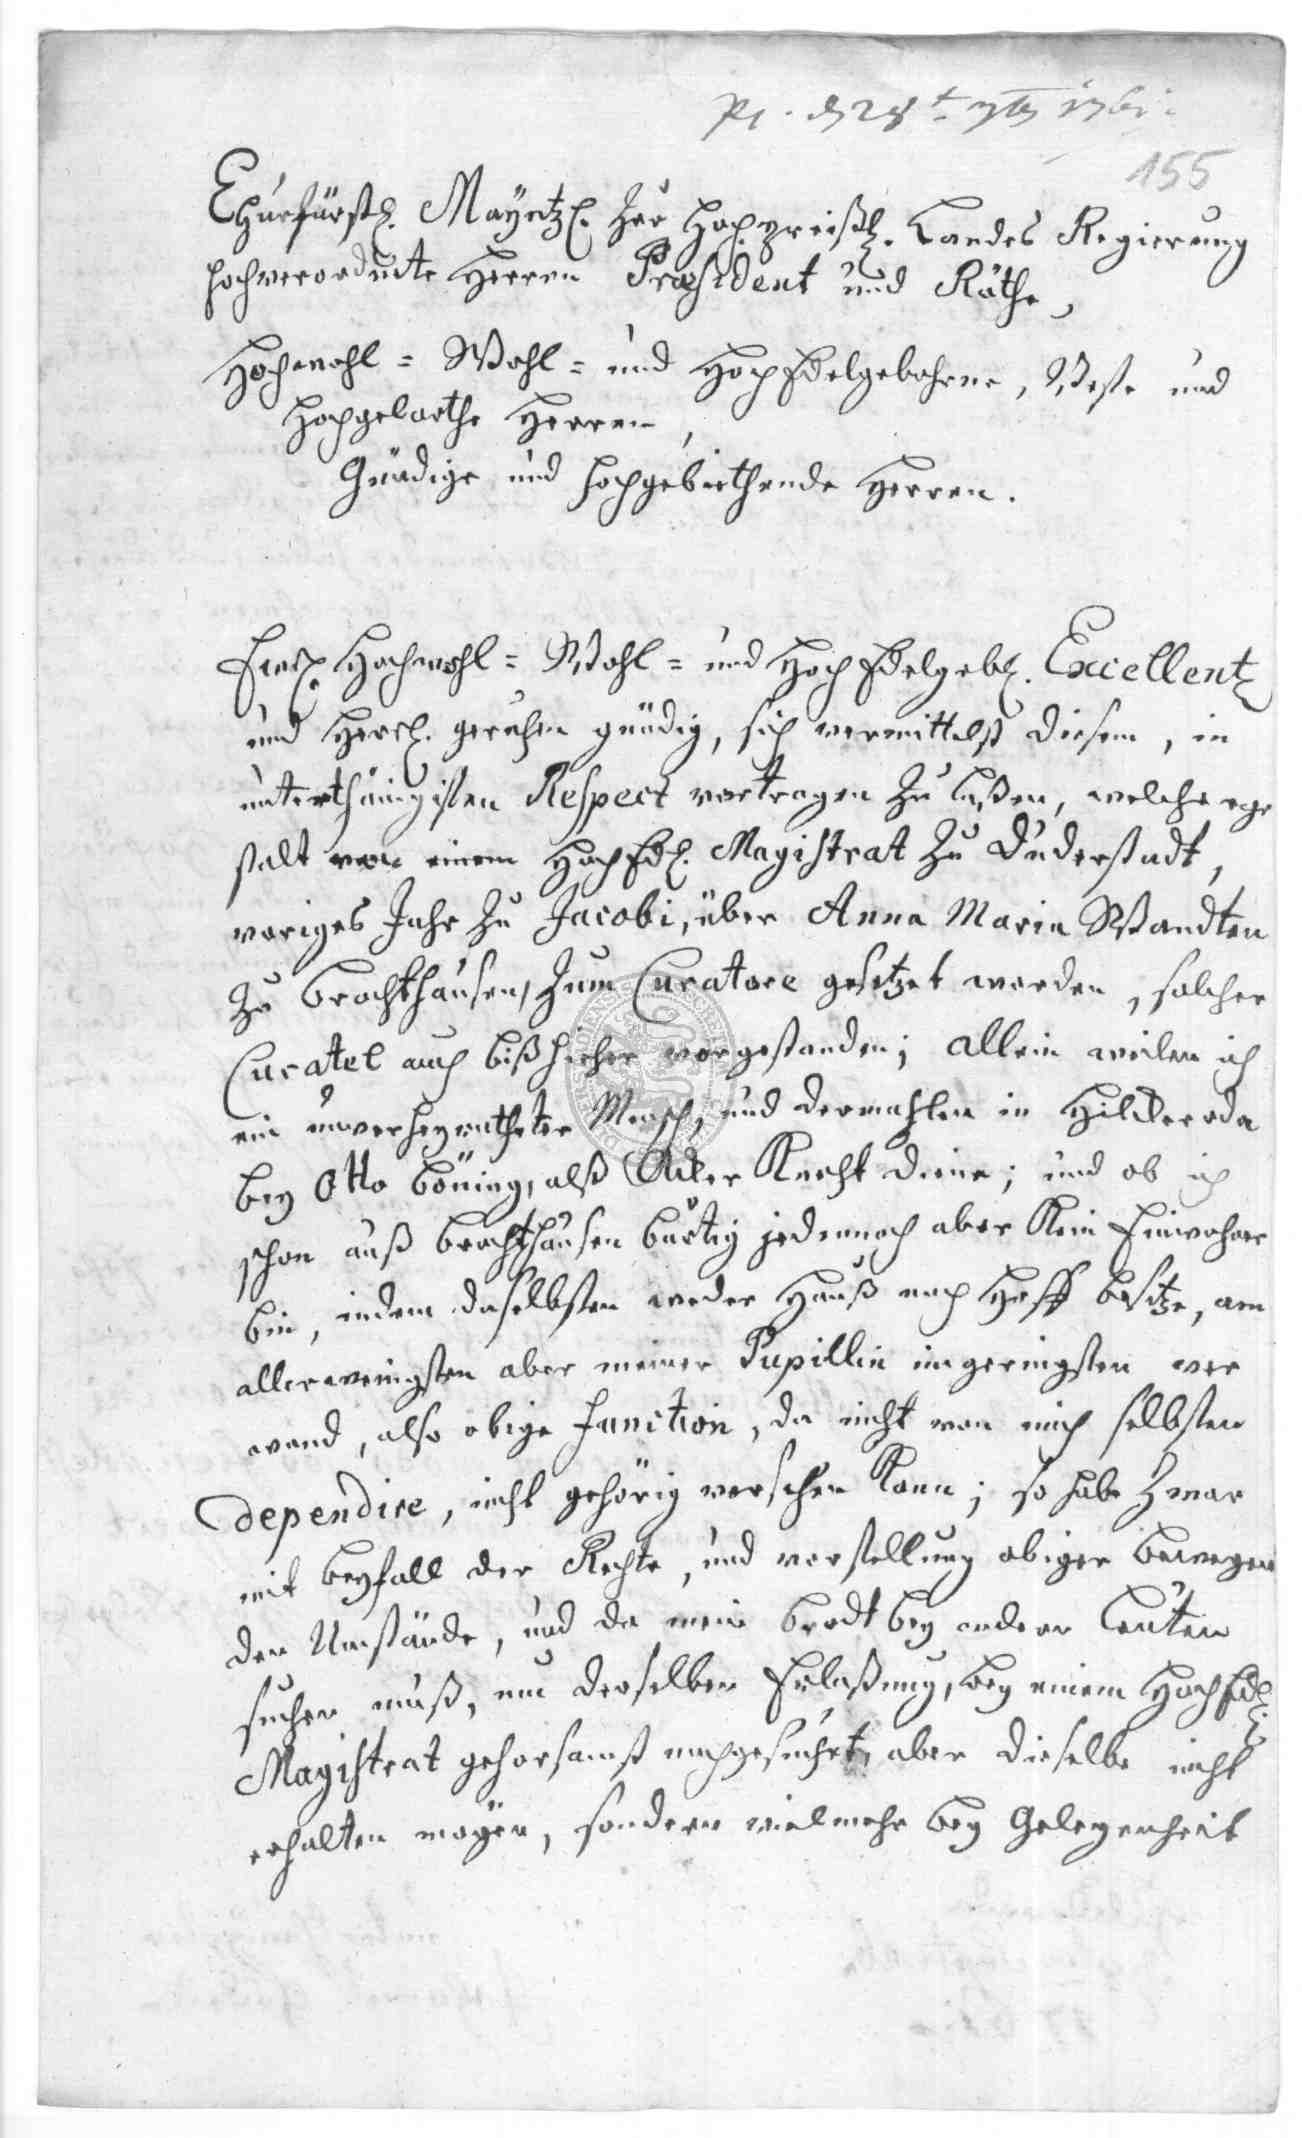 Pr. d. 28t. 7br. 1761.
155
Churfürstl. Mayntzl. Zur hochpreißl. Landes Regierung
hochverordnete Herren Præsident und Räthe,
Hochwohl= Wohl= und HochEdelgebohrne, Veste und
hochgelarthe Herren,
Gnädige und hochgebiethende Herren.
Ewer Hochwohl= Wohl= und HochEdelgebl. Excellentz
und Herrl. geruhen gnädig, sich vermittelst diesem, in
unterthänigsten Respect vortragen zu laßen, welcherge
stalt von einem HochEdl. Magistrat zu Duderstadt,
voriges Jahr zu Jacobi, über Anna Maria Wandten
zu Brochthausen, zum Curatore gesetzet worden, solcher
Curatel auch bißhieher vorgestanden; allein weilen ich
ein unverheyratheter Mensch, und dermahlen in Hilckeroda
bey Otto Böning, alß Acker Knecht diene; und ob ich
schon auß Brochthausen bürtig jedennoch aber kein Einwohner
bin, indem daselbsten weder Hauß noch Hoff besitze, am
allerwenigsten aber meiner Pupillin im geringsten ver
wand, also obige Function, da nicht von mich selbsten
dependire, nicht gehörig versehen kann; so habe zwar
mit beyfall der Rechte, und vorstellung obiger bewegen
den Umstände, und da mein brodt bey andern Leuten
suchen muß, um derselben Erlaßung, bey einem HochEdl.
Magistrat gehorsamst nachgesuchet, aber dieselbe nicht
erhalten mögen, sondern vielmehr bey Gelegenheit